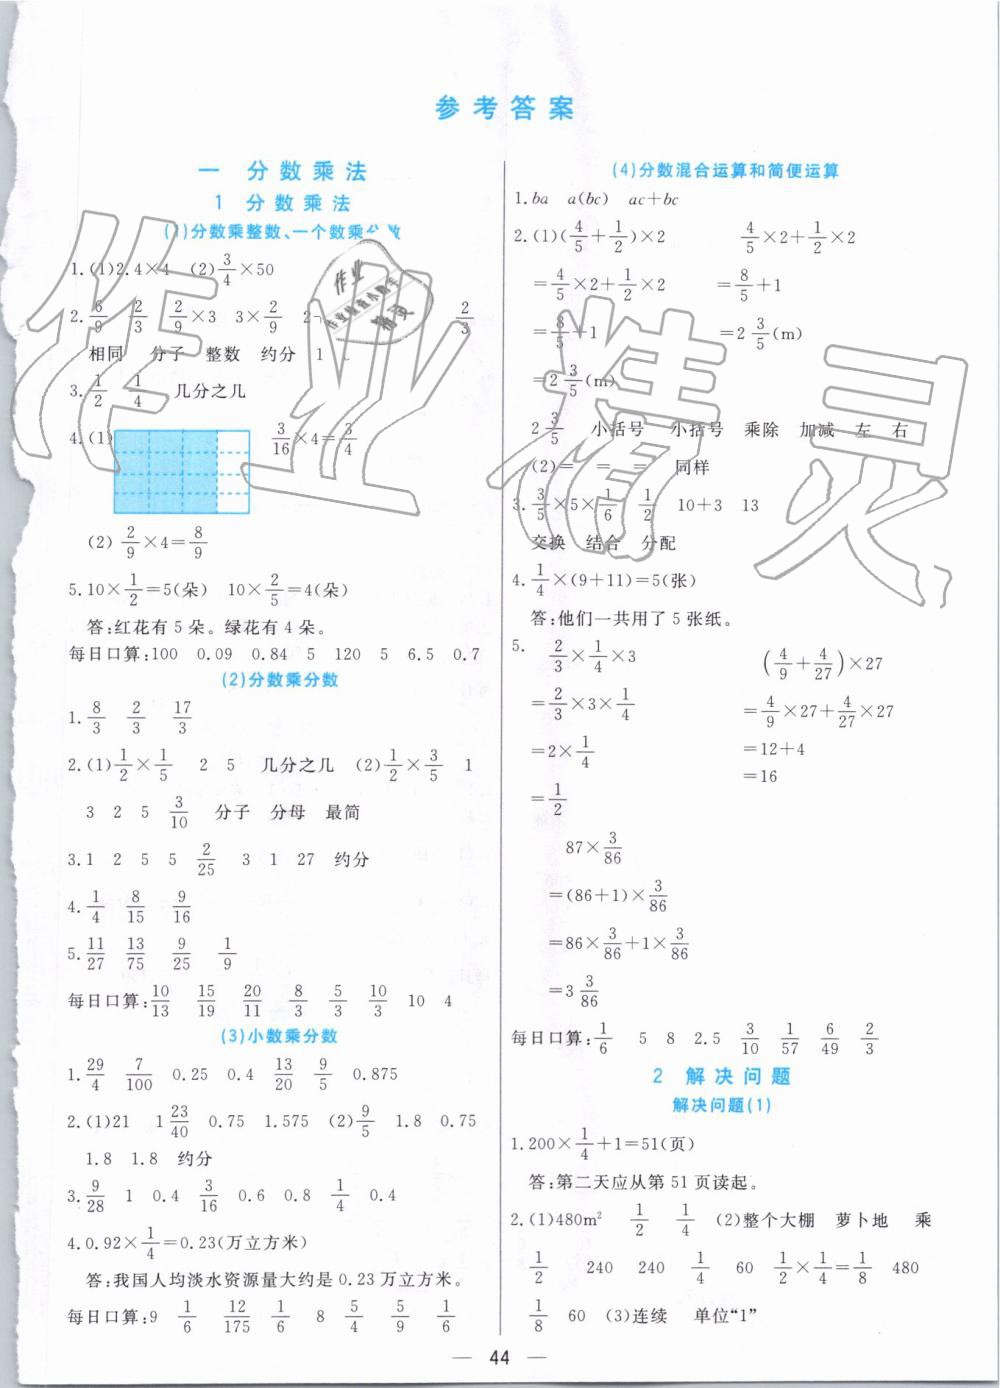 参考答案
一 分数乘法
1 分数乘法
(1)分数乘整数、一个数乘分数
1.(1)2.4×4 (2)3/4×50
2.6/9 2/3 2/9×3 3×2/9 2 2/3
相同 分子 整数 约分 1
3.1/2 1/4 几分之几
4.(1) 3/16×4=3/4
(2) 2/9×4=8/9
5.10×1/2=5(朵) 10×2/5=4(朵)
答:红花有5朵。绿花有4朵。
每日口算:100 0.09 0.84 5 120 5 6.5 0.7
(2)分数乘分数
1.8/3 2/3 17/3
2.(1)1/2×1/5 2 5 几分之几 (2)1/2×3/5 1
3 2 5 3/10 分子 分母 最简
3.1 2 5 5 2/25 3 1 27 约分
4.1/4 8/15 9/16
5.11/27 13/75 9/25 1/9
每日口算:10/13 15/19 20/11 8/3 5/3 10/3 10 4
(3)小数乘分数
1.29/4 7/100 0.25 0.4 13/20 9/5 0.875
2.(1)21 1 23/40 0.75 1.575 (2)9/5 1.8 0.75
1.8 1.8 约分
3.9/28 1 0.4 3/16 0.6 0.8 1/4 0.4
4.0.92×1/4=0.23(万立方米)
答:我国人均淡水资源量大约是0.23万立方米。
每日口算:9 1/6 12/175 1/6 8 5/4 5/9 1/6
(4)分数混合运算和简便运算
1.ba a(bc) ac+bc
2.(1)(4/5+1/2)×2 4/5×2+1/2×2
=4/5×2+1/2×2 =8/5+1
=8/5+1 =2 3/5(m)
=2 3/5(m)
2 3/5 小括号 小括号 乘除 加减 左 右
(2)= = = 同样
3.3/5×5×1/6 1/2 10+3 13
交换 结合 分配
4.1/4×(9+11)=5(张)
答:他们一共用了5张纸。
5. 2/3×1/4×3 (4/9+4/27)×27
=2/3×3×1/4 =4/9×27+4/27×27
=2×1/4 =12+4
=1/2 =16
87×3/86
=(86+1)×3/86
=86×3/86+1×3/86
=3 3/86
每日口算:1/6 5 8 2.5 3/10 1/57 6/49 2/3
2 解决问题
解决问题(1)
1.200×1/4+1=51(页)
答:第二天应从第51页读起。
2.(1)480m² 1/2 1/4 (2)整个大棚 萝卜地 乘
1/2 240 240 1/4 60 1/2×1/4=1/8 480
1/8 60 (3)连续 单位“1”
— 44 —
作业精灵